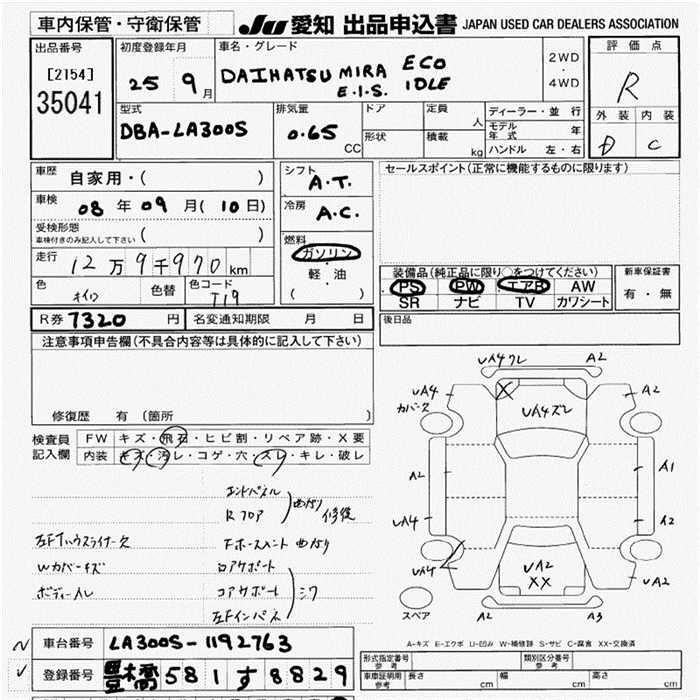 車内保管・守衛保管
JU 愛知 出品申込書 JAPAN USED CAR DEALERS ASSOCIATION
出品番号
[2154]
35041
初度登録年月
25 9月
車名・グレード
DAIHATSU MIRA ECO
E.I.S. IDLE
2WD
・
4WD
評価点
R
外装 内装
D C
型式
DBA-LA300S
排気量
0.65 CC
ドア
形状
定員 人
積載 kg
ディーラー・並行
モデル年式 年
ハンドル 左・右
車歴 自家用・( )
車検 08年09月(10日)
受検形態
車検付きのみ記入して下さい ( )
走行 12万9千970km
色 色替 色コード
T19
R券 7320円 名変通知期限 月 日
シフト
A.T.
冷房
A.C.
燃料
ガソリン
軽・油
( )
セールスポイント(正常に機能するものに限ります)
装備品(純正品に限り○をつけてください)
PS PW エアB AW
SR ナビ TV カワシート
新車保証書
有・無
後日品
注意事項申告欄(不具合内容等は具体的に記入して下さい)
修復歴 有 (箇所
検査員記入欄
FW キズ・飛石・ヒビ割・リペア跡・X要
内装 キズ・汚レ・コゲ・穴・スレ・キレ・破レ
エンドパネル
Rフロア
曲ガリ 修復
Wカバーキズ
コアサポート
左Fインパネ
UA4ワレ A2
UA4 UA4ズレ A2
X
A2 A1
UA4 A2
UA4 UA2 UA2
XX
スペア A2 A3
A-キズ E-エクボ U-凹み W-補修跡 S-サビ C-腐食 XX-交換済
車台番号 LA300S-1192763
登録番号 豊橋 581 す 8829
形式指定番号 参考
類別区分番号 参考
車庫証明用 参考 長さ cm 幅 cm 高さ cm